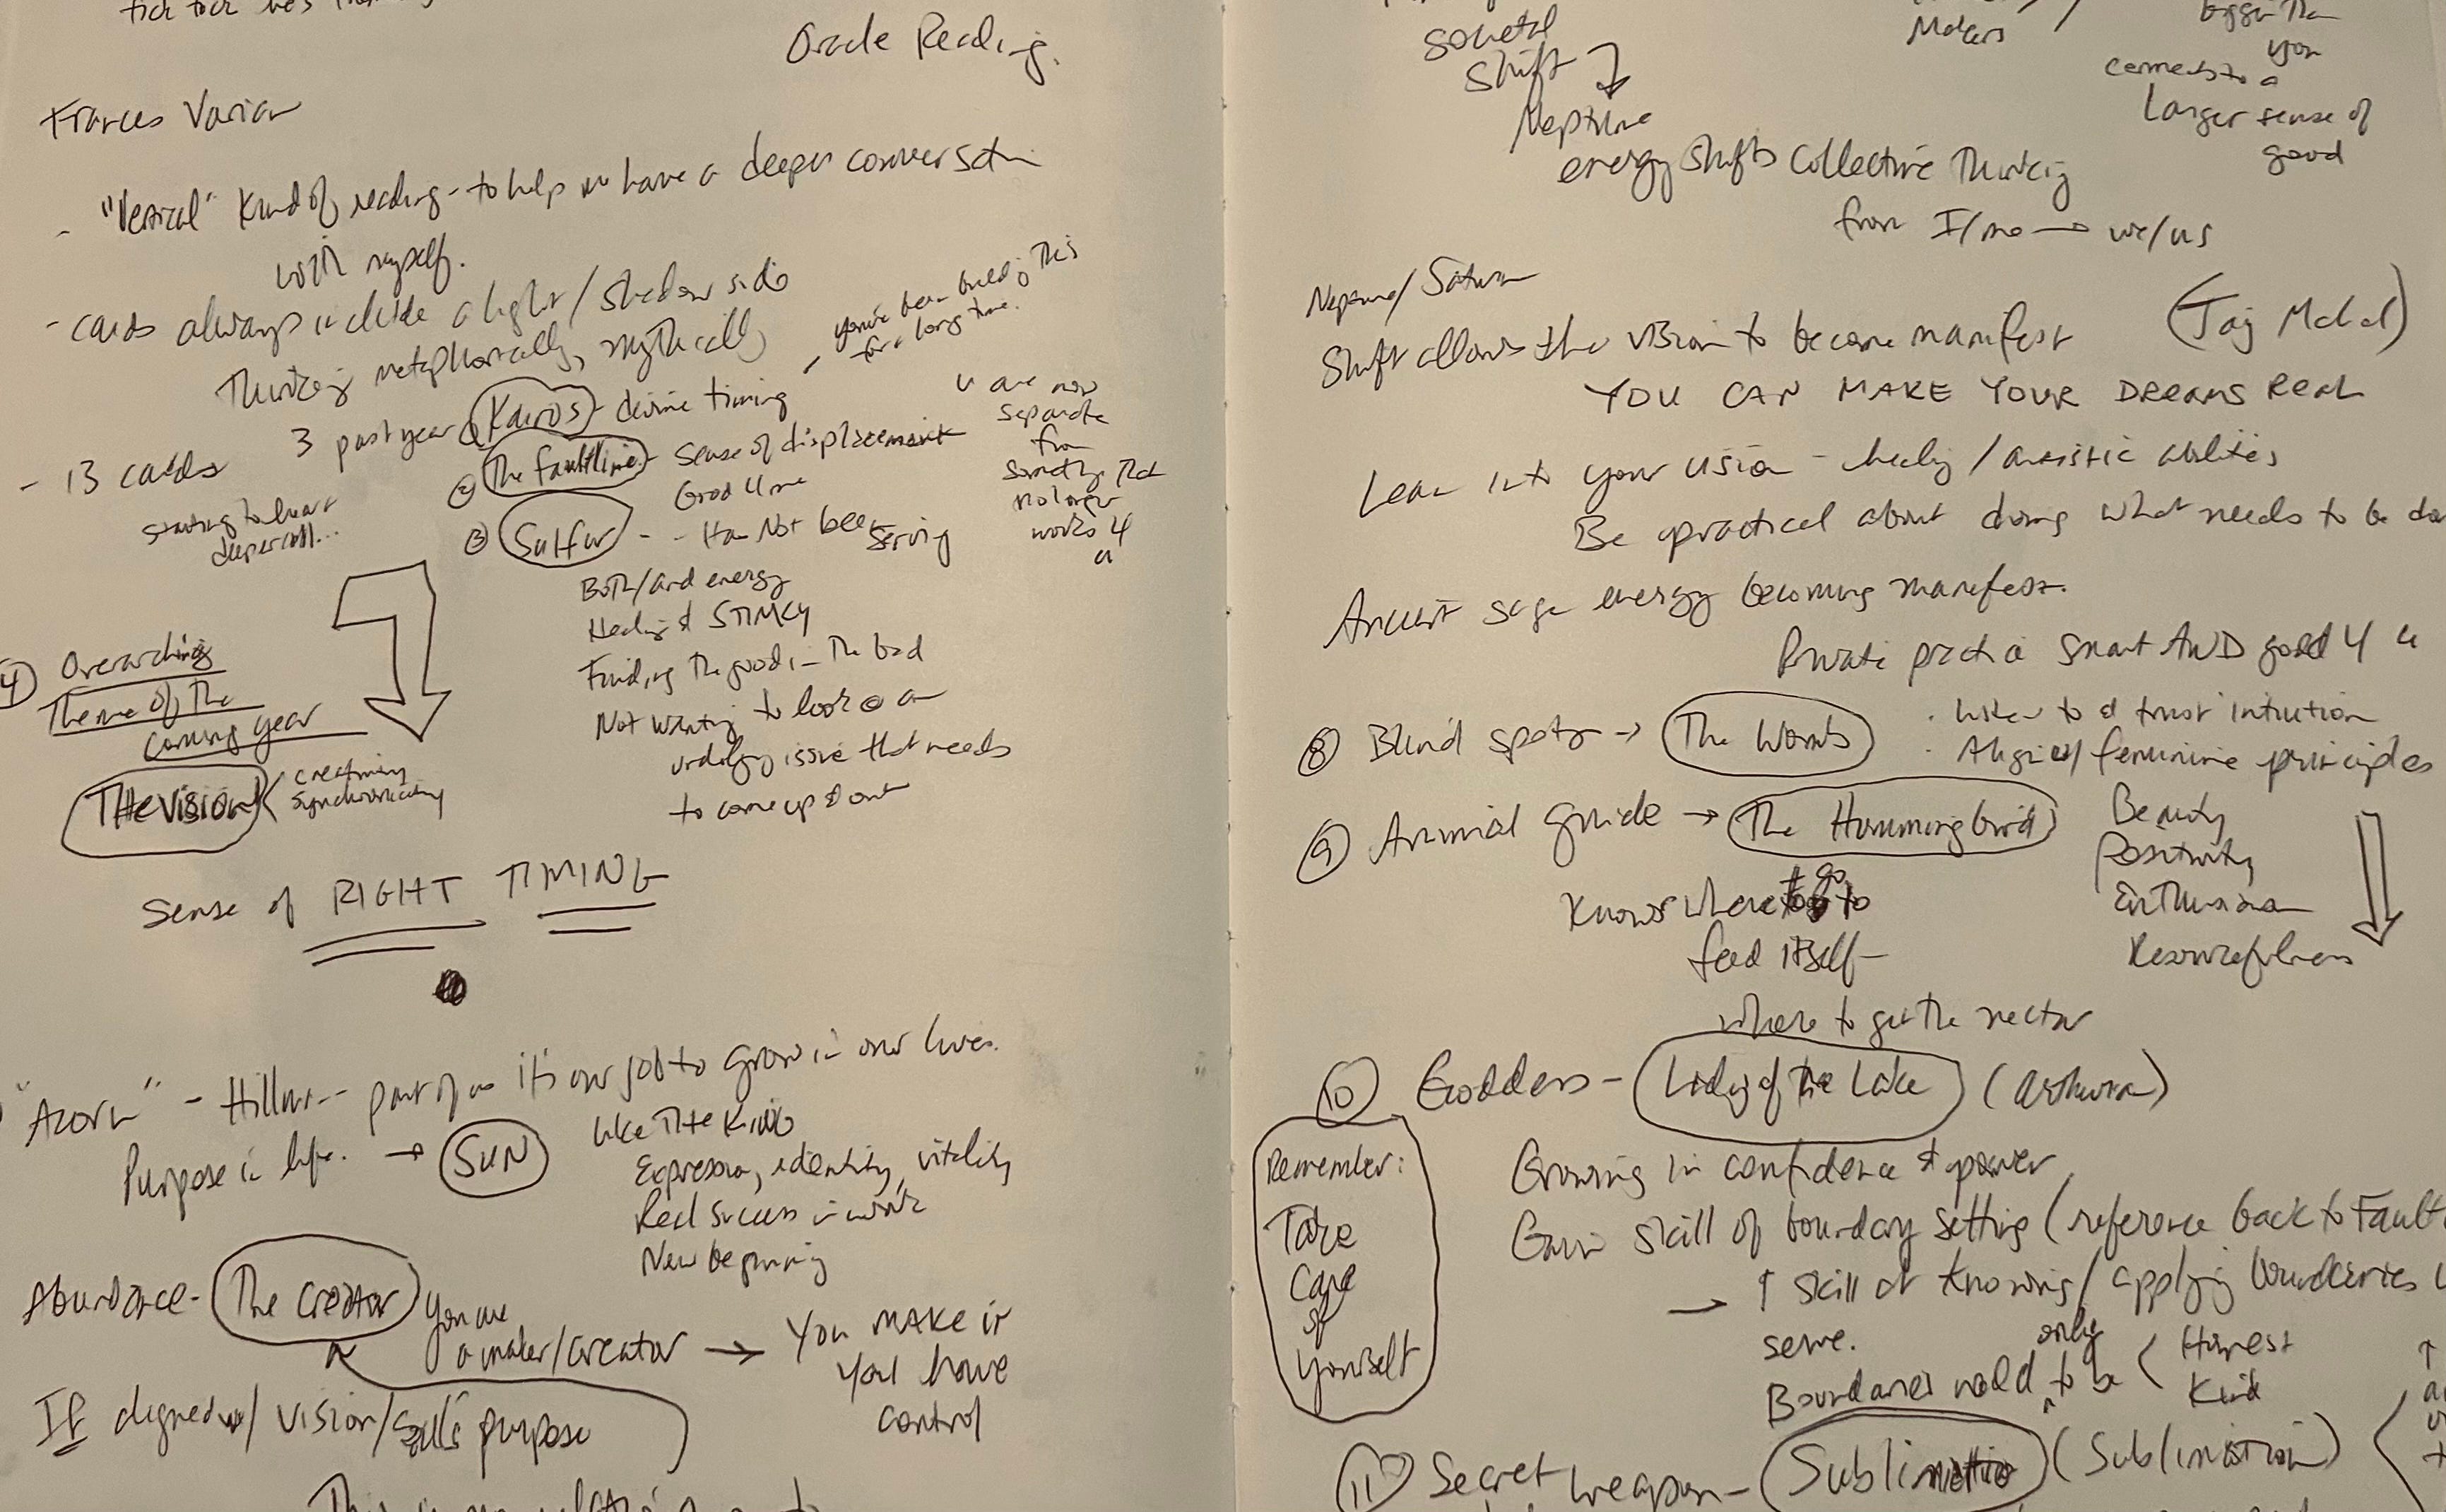 Oracle Reading.
Frances Varian
- "Vertical" kind of reading - to help me have a deeper conversation
with myself.
- cards always include a light/shadow side
Thinking metaphorically, mythically
- you've been building This
for a long time.
- 13 cards
3 past year
Kairos - divine timing
② The faultline - sense of displacement
Good 4 me
u are now
separate
from
something That
no longer
works 4
u
starting to hear
deeper call...
③ Sulfur - - Has Not been serving
Both/and energy
Healing & STINKY
Finding The good in The bad
Not wanting to look @ an
underlying issue that needs
to come up & out
4) Overarching
Theme of The
coming year
THE VISION
creativity
synchronicity
Sense of RIGHT TIMING
"Acorn" - Hillman - part of us it's our job to grow in our lives.
Purpose in life. → SUN
like THE King
Expression, identity, vitality
Real success in work
New beginning
Abundance - The Creator
you are
a maker/creator → You MAKE it
You have
control
If aligned w/ vision/soul's purpose
societal
shift
Neptune
energy shifts Collective Thinking
from I/me → we/us
Makers
bigger Than
you
connects to a
Larger sense of
good
Neptune/Saturn
Shift allows the vision to become manifest (Taj Mahal)
YOU CAN MAKE YOUR DREAMS REAL
Lean into your vision - healing/artistic abilities
Be practical about doing what needs to be do
Ancient sage energy becoming manifest.
Private practice smart AND good 4 u
⑧ Blind spots → The Womb
· Listen to & trust intuition
· Align w/ feminine principles
⑨ Animal guide → The Hummingbird
Beauty
Positivity
Enthusiasm
Resourcefulness
Knows where to go to
feed itself -
where to get the nectar
⑩ Goddess - Lady of the Lake (Arthurian)
Remember:
Take
Care
of
yourself
Growing in confidence & power
Gain skill of boundary setting (reference back to Fault
→ ↑ skill at knowing/applying boundaries
serve.
Boundaries need only to be
Honest
Kind
⑪ Secret weapon - Sublimatio (Sublimation)